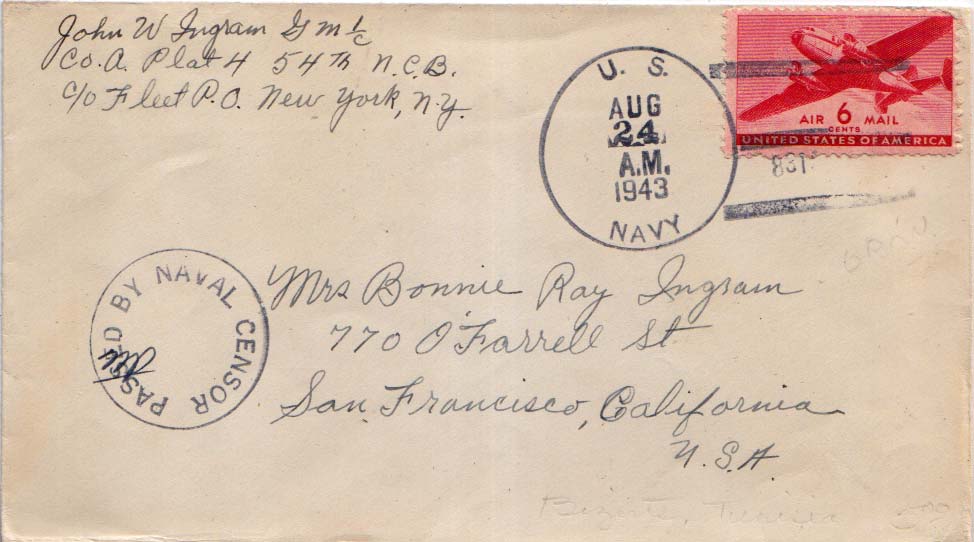 John W Ingram G M 1/c
Co. A. Plat 4 54th N.C.B.
c/o Fleet P.O. New York, N.Y.
U. S.
AUG
24
A.M.
1943
NAVY
AIR 6 MAIL
CENTS
UNITED STATES OF AMERICA
831
PASSED BY NAVAL CENSOR
Mrs Bonnie Ray Ingram
770 O'Farrell St
San Francisco, California
U.S.A
Bizerte, Tunisia